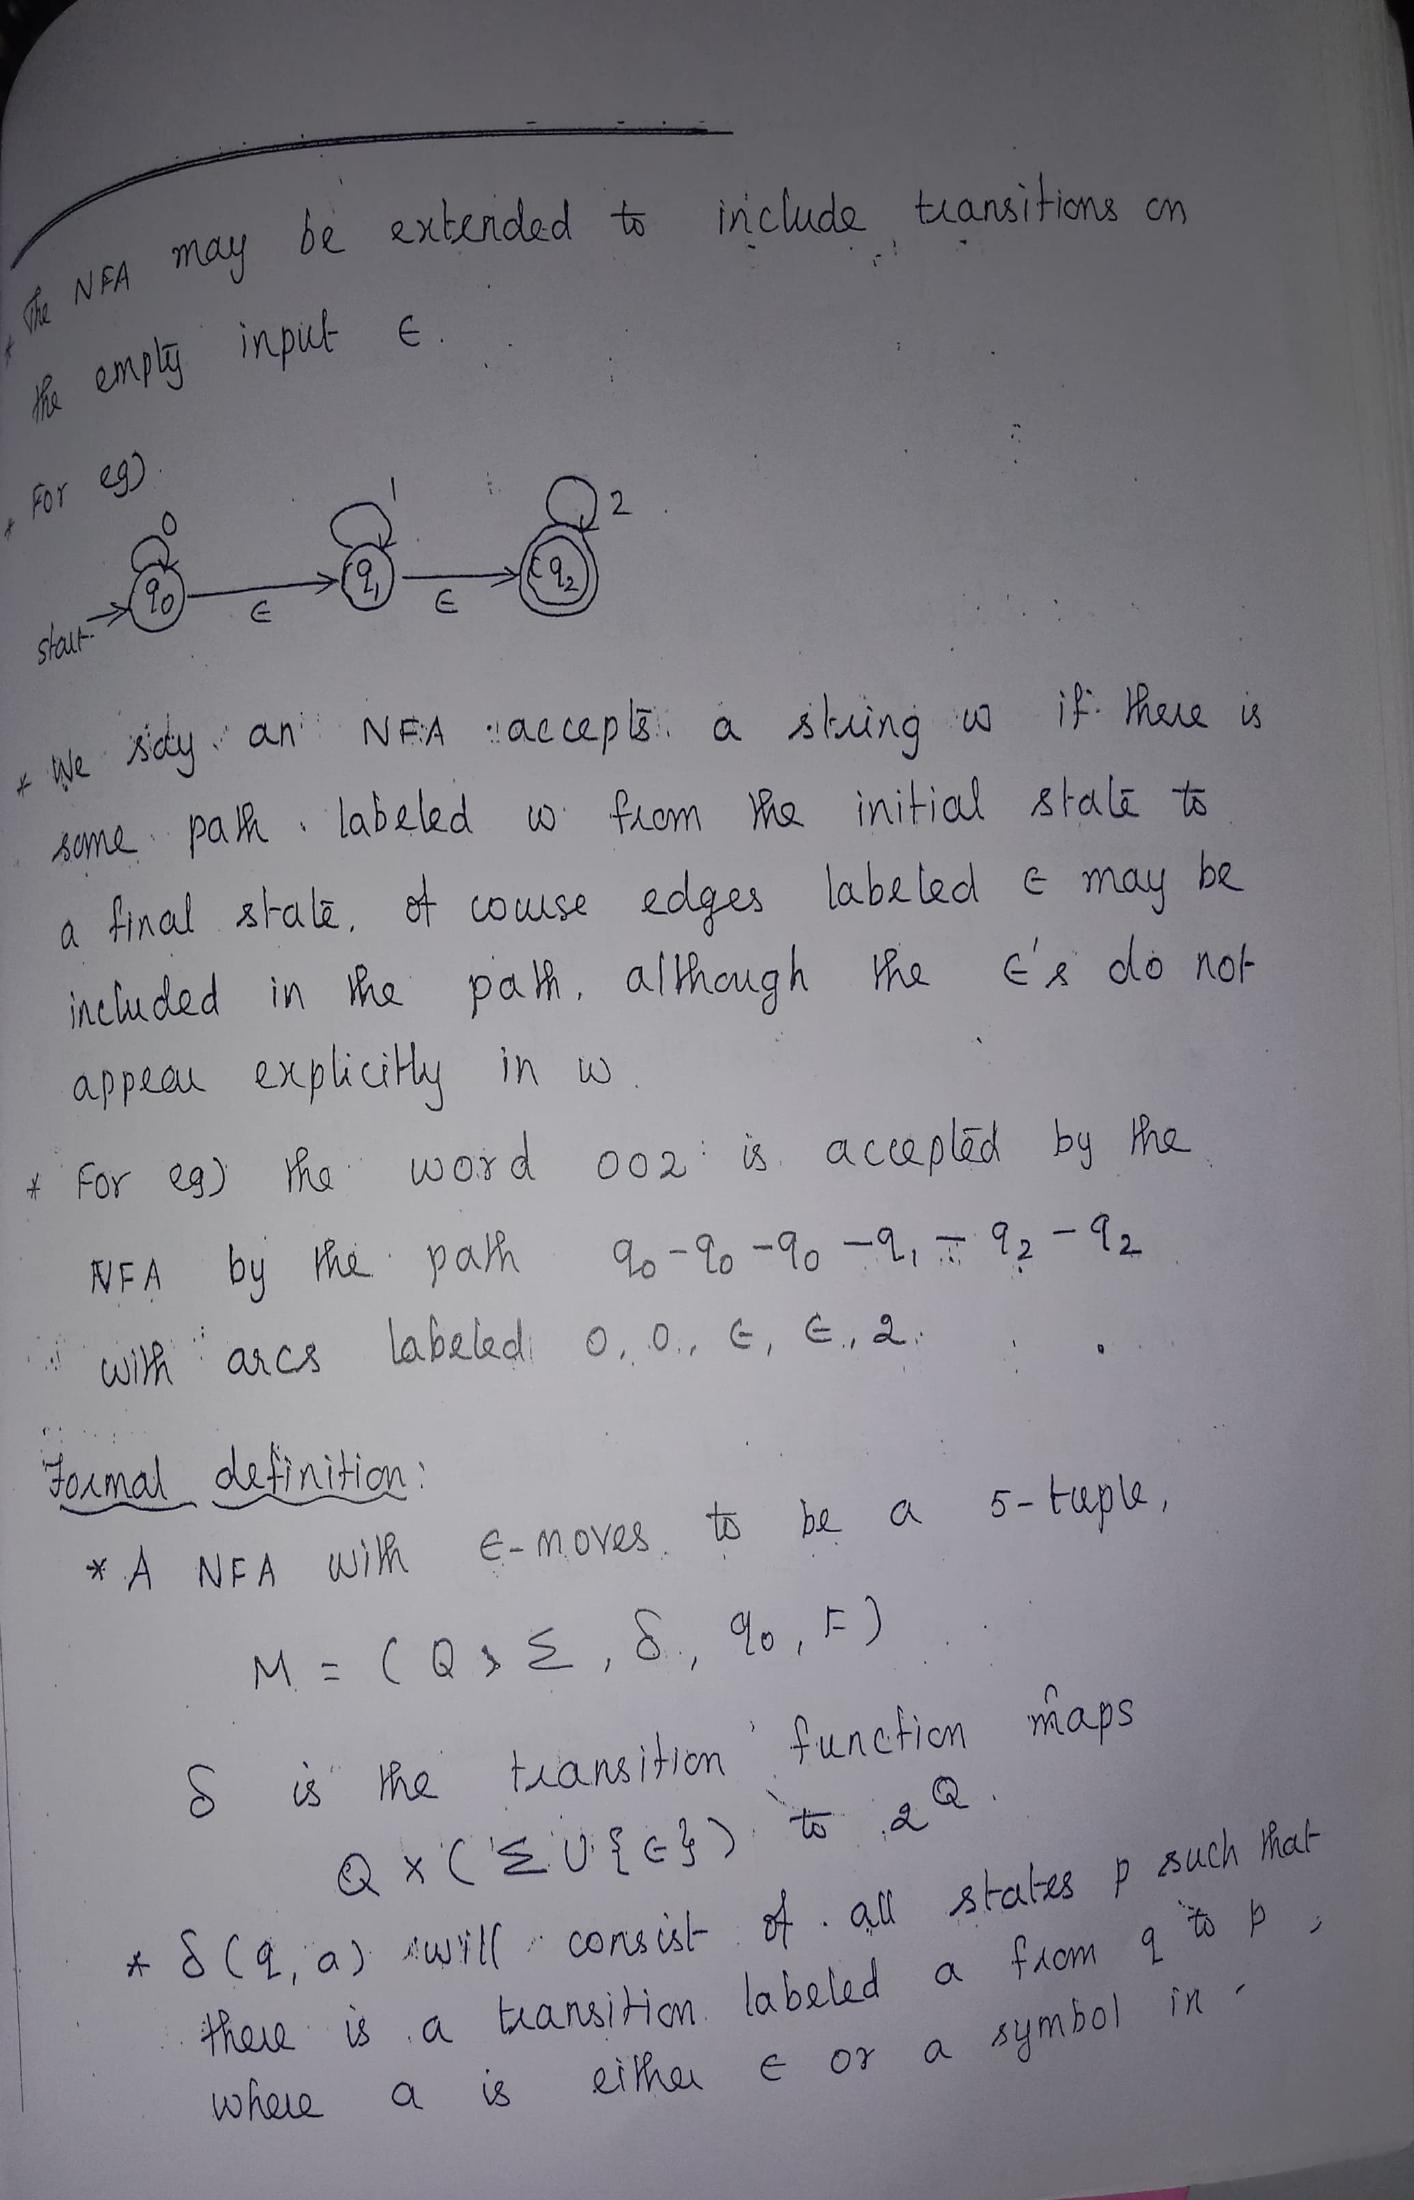 * The NFA may be extended to include transitions on
the empty input ϵ.
* For eg)
0 1 2
start q0 ϵ q1 ϵ q2
* We say an NFA accepts a string w if there is
some path labeled w from the initial state to
a final state. Of course edges labeled ϵ may be
included in the path, although the ϵ's do not
appear explicitly in w.
* For eg) the word 002 is accepted by the
NFA by the path q0 - q0 - q0 - q1 - q2 - q2
with arcs labeled 0, 0, ϵ, ϵ, 2.
Formal definition:
* A NFA with ϵ-moves to be a 5-tuple,
M = (Q, Σ, δ, q0, F)
δ is the transition function maps
Q x (Σ ∪ {ϵ}) to 2^Q.
* δ(q, a) will consist of all states p such that
there is a transition labeled a from q to p,
where a is either ϵ or a symbol in